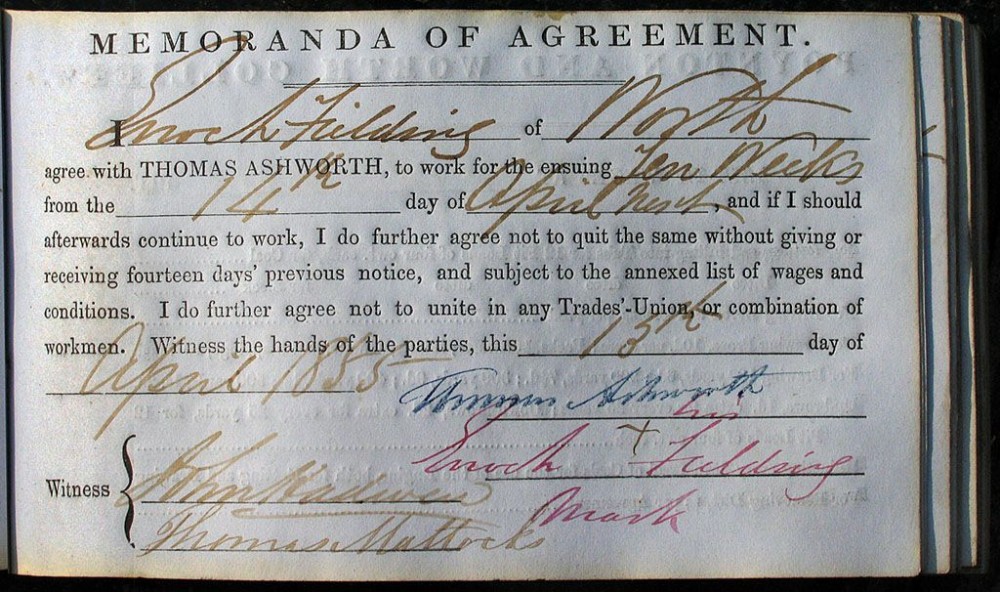 MEMORANDA OF AGREEMENT.
I Enoch Fielding of Worth
agree with THOMAS ASHWORTH, to work for the ensuing Ten Weeks
from the 14th day of April next, and if I should
afterwards continue to work, I do further agree not to quit the same without giving or
receiving fourteen days' previous notice, and subject to the annexed list of wages and
conditions. I do further agree not to unite in any Trades'-Union, or combination of
workmen. Witness the hands of the parties, this 13th day of
April 1835
Thomas Ashworth
his
Enoch + Fielding
Witness { John
mark
Thomas Mattocks